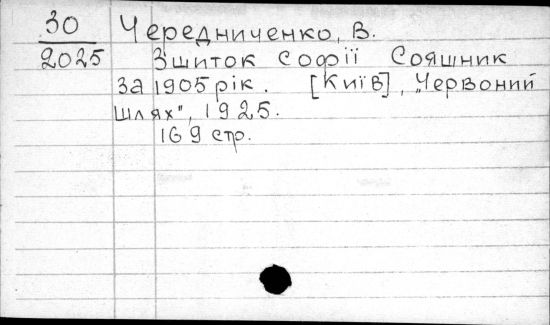 30 Чередниченко, В.
2025 Зшиток Софії Сояшник
за 1905 рік. [Київ], „Червоний
шлях", 1925.
169 стр.